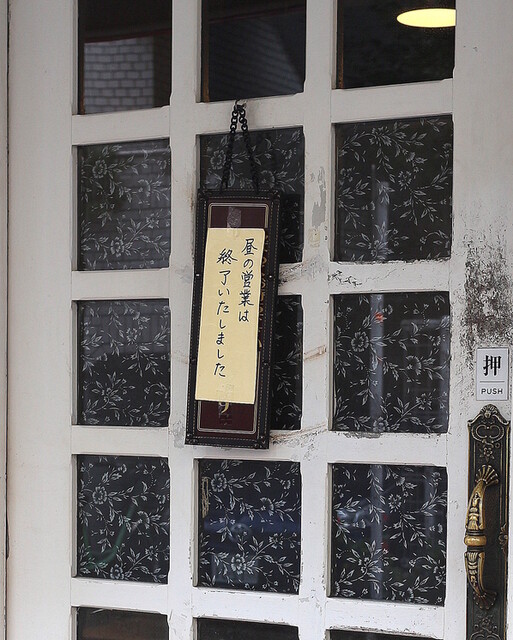 昼の営業は
終了いたしました
押
PUSH